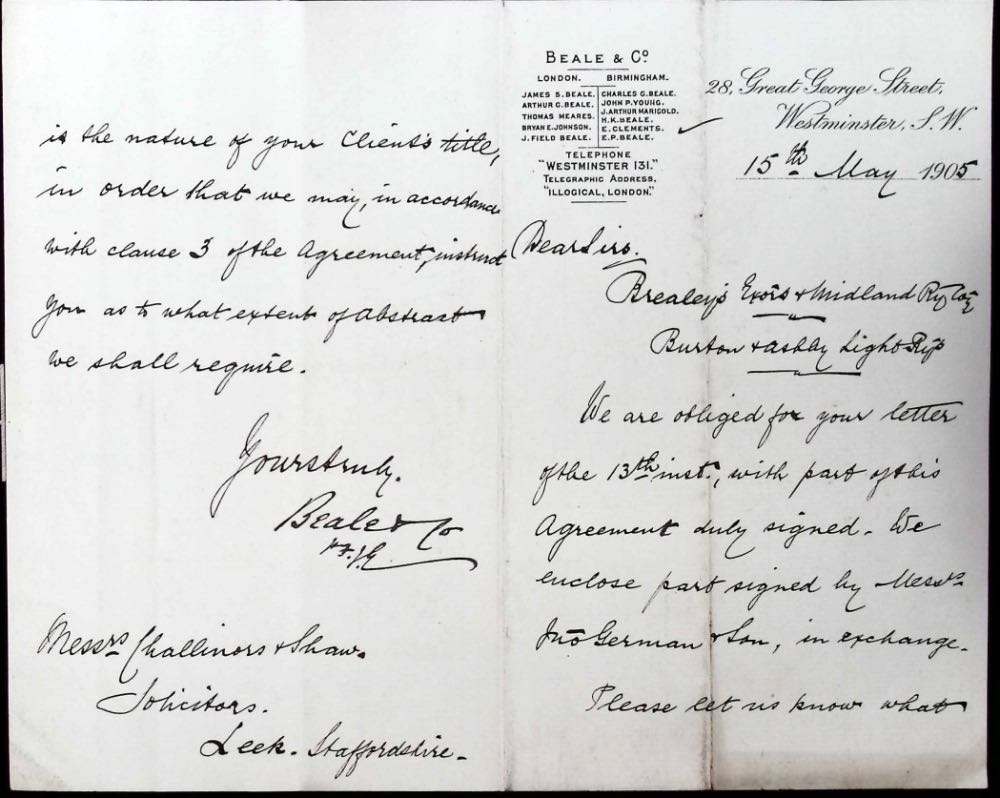 BEALE & Cº
LONDON. BIRMINGHAM.
JAMES S. BEALE. CHARLES G. BEALE.
ARTHUR C. BEALE. JOHN P. YOUNG.
THOMAS MEARES. J. ARTHUR MARIGOLD.
BRYAN E. JOHNSON. H. K. BEALE.
J. FIELD BEALE. E. CLEMENTS.
E. P. BEALE.
TELEPHONE
"WESTMINSTER 131."
TELEGRAPHIC ADDRESS,
"ILLOGICAL, LONDON."
28, Great George Street,
Westminster, S.W.
15th May 1905
Dear Sirs.
Brealey's Exors & Midland Ry Coy
Burton & Ashby Light Rys
We are obliged for your letter
of the 13th inst., with part of this
Agreement duly signed. We
enclose part signed by Messrs
Jno German & Son, in exchange.
Please let us know what
is the nature of your Client's title,
in order that we may, in accordance
with clause 3 of the Agreement, instruct
you as to what extent of Abstract
we shall require.
Yours truly.
Beale & Co
Messrs Challinors & Shaw.
Solicitors.
Leek. Staffordshire.